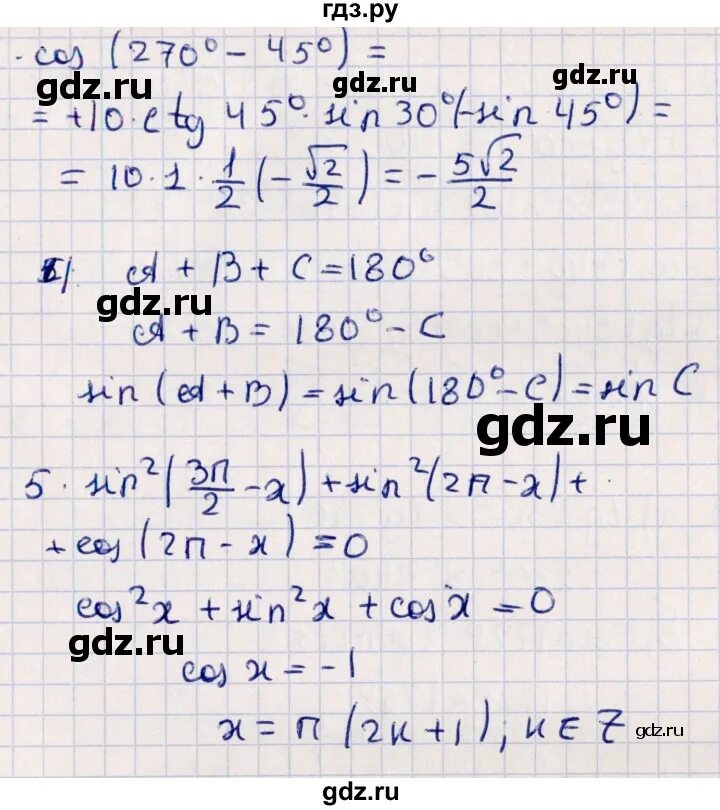 гдз.ру
· cos (270° - 45°) =
gdz.ru gdz.ru gdz.ru
= +10 · ctg 45° · sin 30° (-sin 45°) =
= 10 · 1 · 1/2 (- √2/2) = - 5√2/2
A + B + C = 180°
gdz.ru
A + B = 180° - C
sin (A + B) = sin (180° - C) = sin C
gdz.ru
5 · sin² (3π/2 - x) + sin² (2π - x) +
gdz.ru gdz.ru
+ cos (2π - x) = 0
cos² x + sin² x + cos x = 0
gdz.ru
cos x = -1
x = π (2k + 1), k ∈ Z
gdz.ru
gdz.ru